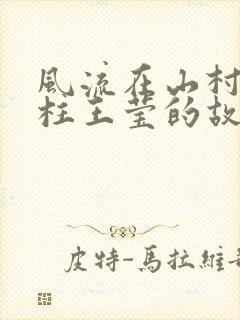 風流在山村
柱王莹的故
皮特-馬拉維